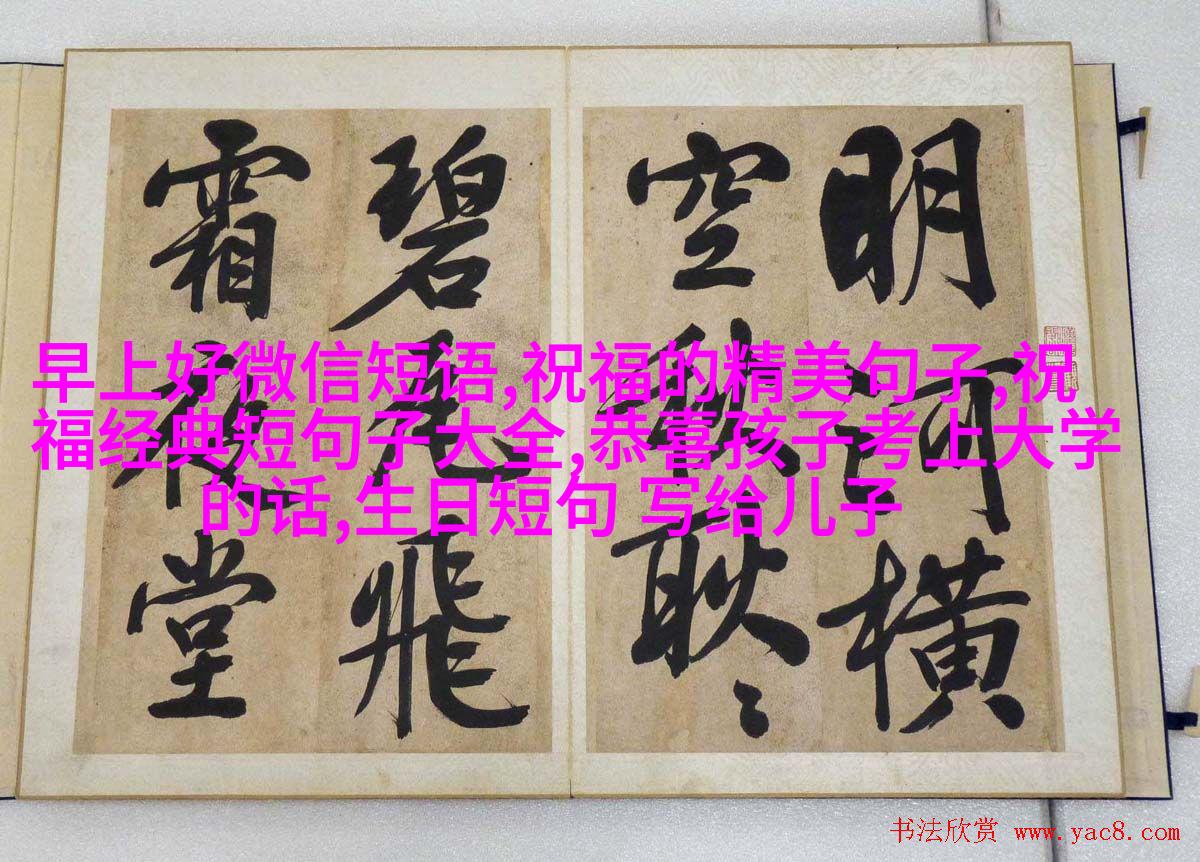 早上好微信短语,祝福的精美句子,祝
福经典短句子大全,恭喜孩子考上大学
的话,生日短句 写给儿子
明河橫
空秋耿〻
碧瓦飛
霜夜堂
书法欣赏 www.yac8.com